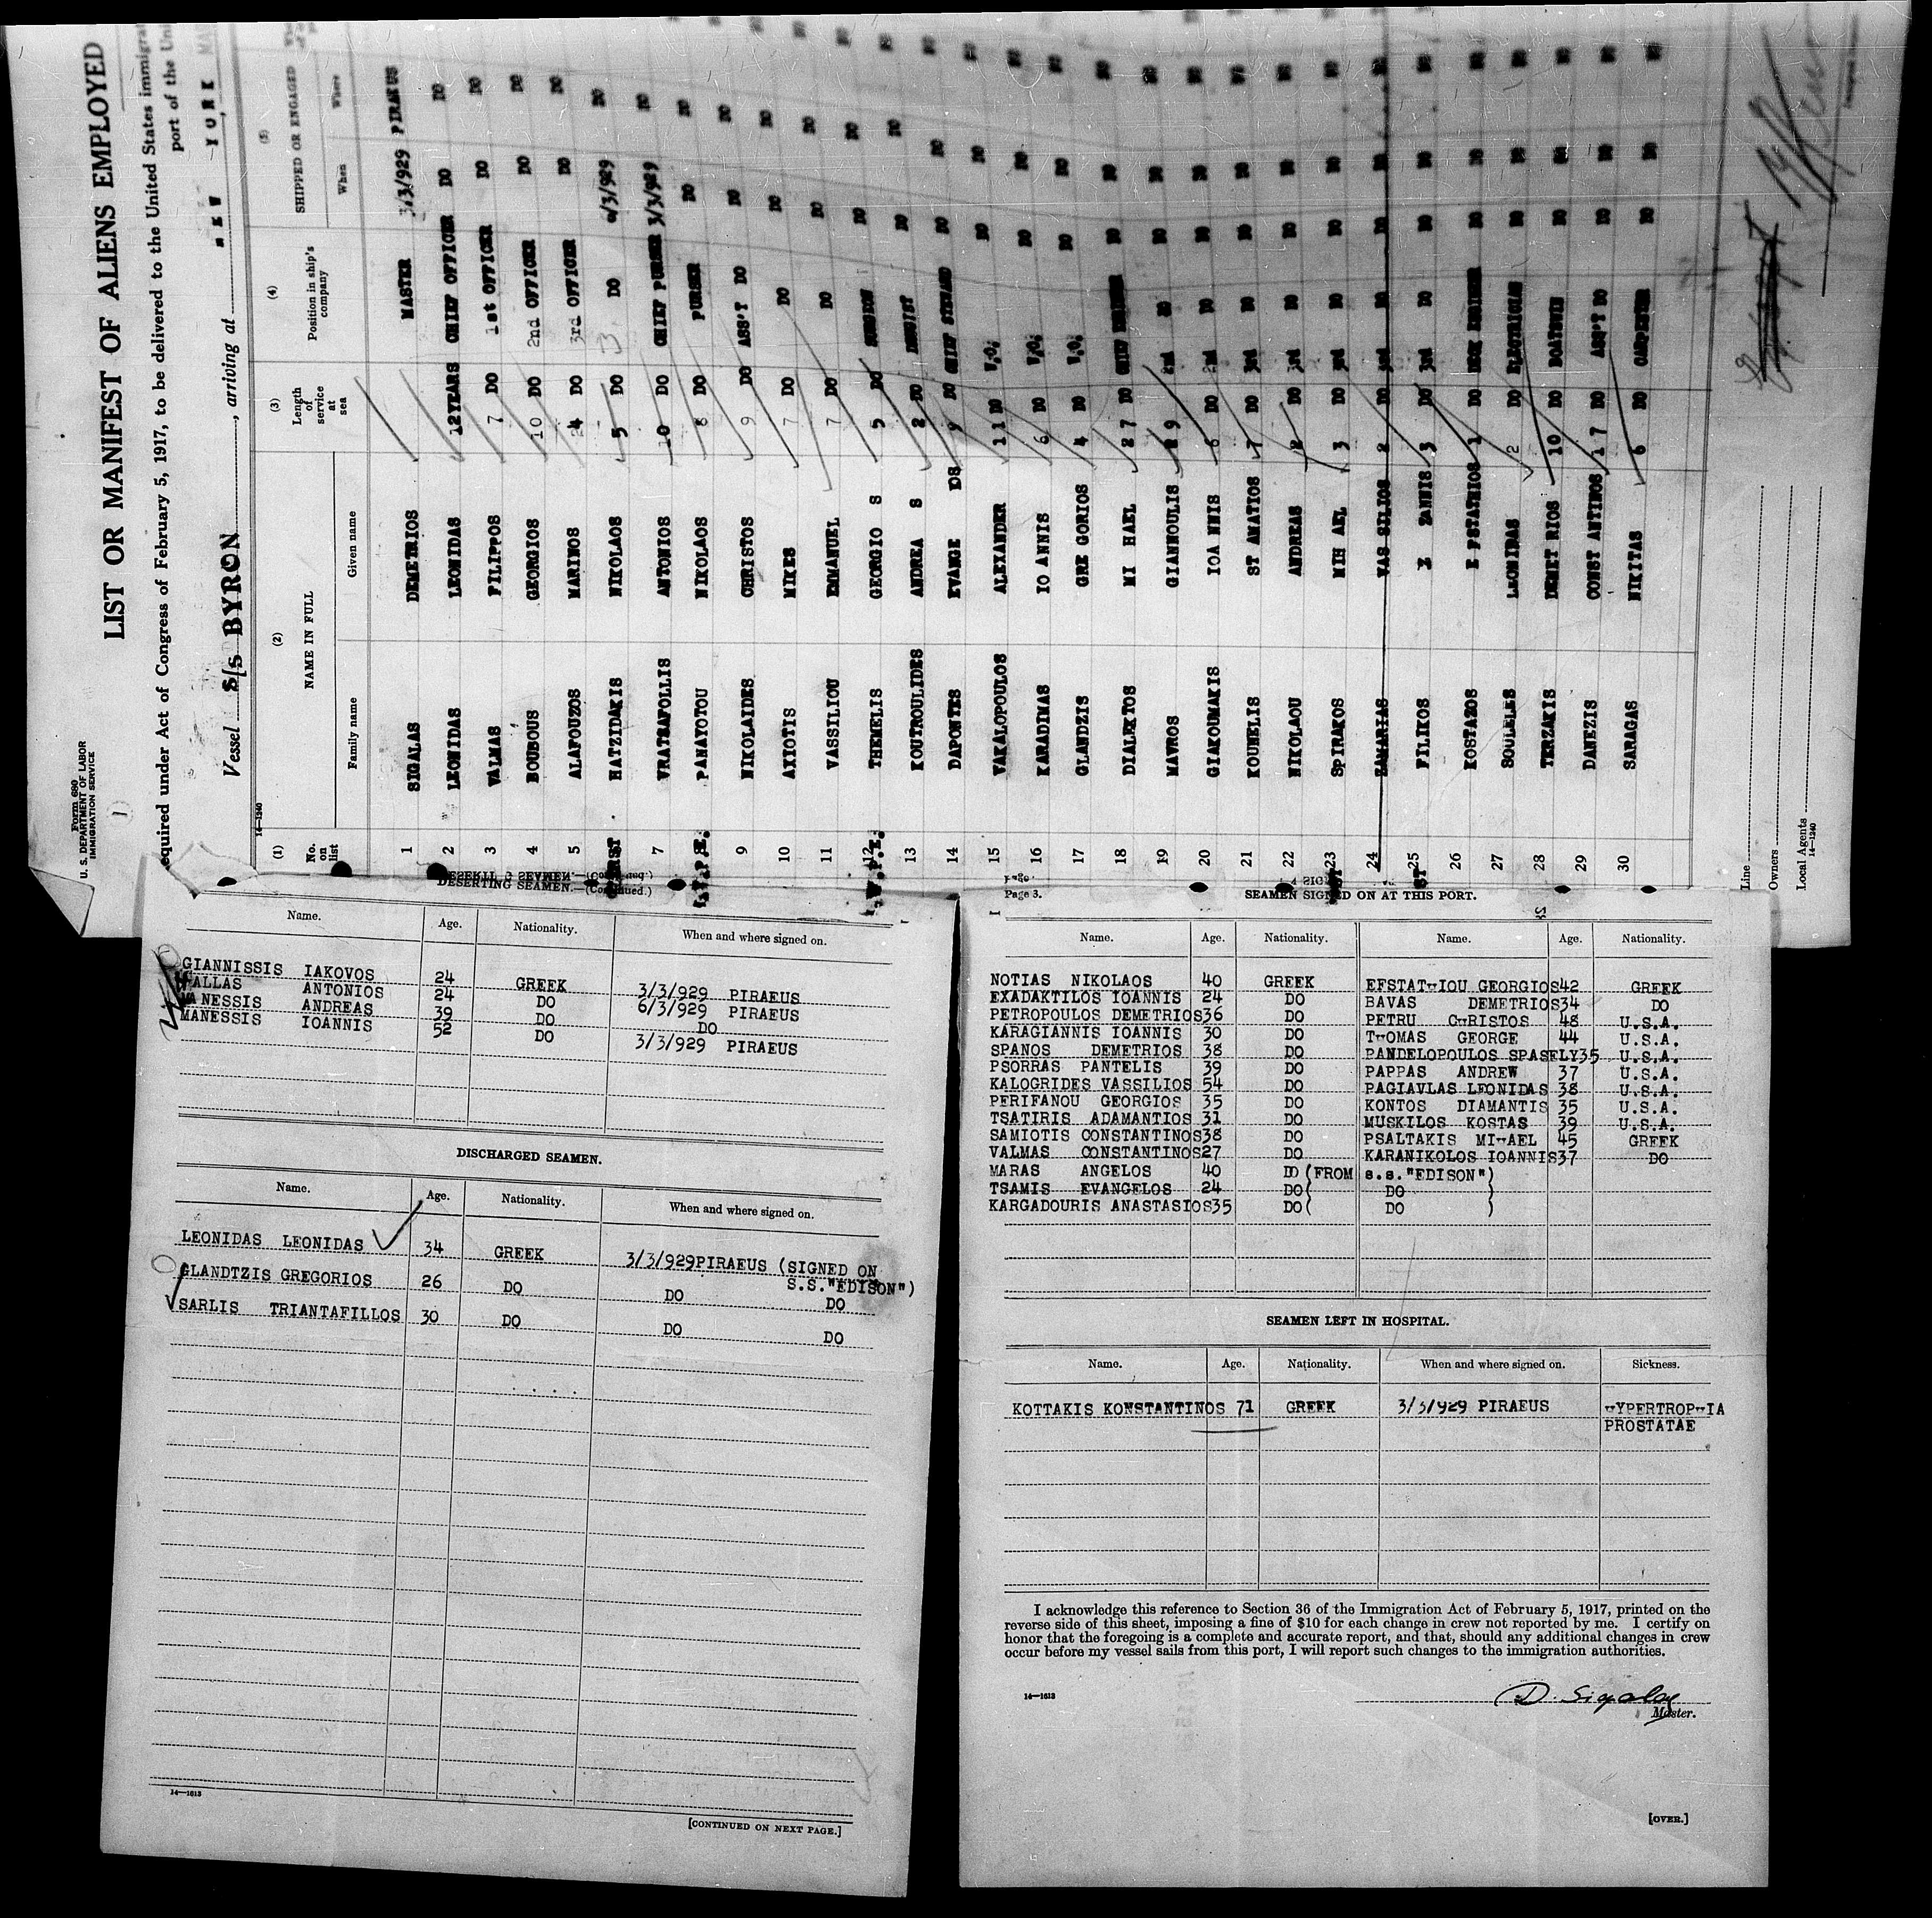 Form 680
U. S. DEPARTMENT OF LABOR
IMMIGRATION SERVICE
LIST OR MANIFEST OF ALIENS EMPLOYED
equired under Act of Congress of February 5, 1917, to be delivered to the United States immigra
port of the Uni
Vessel S/S BYRON, arriving at NEW YORK
14—1240
(1) (2) (3) (4) (5)
No. on list NAME IN FULL Length of service at sea Position in ship's company SHIPPED OR ENGAGED
Family name Given name When Where
1 SIGALAS DEMETRIOS MASTER 3/3/929 PIRAEUS
2 LEONIDAS LEONIDAS 12YEARS CHIEF OFFICER DO DO
3 VALMAS FILIPPOS 7 DO 1st OFFICER DO DO
4 BOUBOUS GEORGIOS 10 DO 2nd OFFICER DO DO
5 ALAFOUZOS MARINOS 4 DO 3rd OFFICER DO DO
6 HATZIDAKIS NIKOLAOS 5 DO DO 6/3/929 DO
7 VRATSAFOLLIS ANTONIOS 10 DO CHIEF PURSER 3/3/929 DO
8 PANAYOTOU NIKOLAOS 8 DO PURSER DO DO
9 NIKOLAIDES CHRISTOS 9 DO ASS'T DO DO DO
10 AXIOTIS MIKES 7 DO DO DO DO
11 VASSILIOU EMMANUEL 7 DO DO DO DO
12 THEMELIS GEORGIO S 5 DO SURGEON DO DO
13 KOUTROULIDES ANDREA S 2 DO DENTIST DO DO
14 DAPONTES EVANGE LOS 9 DO CHIEF STEWARD DO DO
15 VAKALOPOULOS ALEXANDER 11 DO W.O. DO DO
16 KARADIMAS IO ANNIS 6 DO W.O. DO DO
17 GLANDZIS GRE GORIOS 4 DO W.O. DO DO
18 DIALEKTOS MI HAEL 27 DO CHIEF ENGINEER DO DO
19 MAVROS GIANNOULIS 29 2nd DO DO DO
20 GIAKOUMAKIS IOA NNIS 6 DO 2nd DO DO DO
21 KOUNELIS ST AMATIOS 7 DO 3rd DO DO DO
22 NIKOLAOU ANDREAS 2 DO 3rd DO DO DO
23 SPIRAKOS MIH AEL 3 DO 3rd DO DO DO
24 ZAMARIAS VAS SILIOS 2 DO 3rd DO DO DO
25 FILIKOS Z ZANNIS 3 DO 3rd DO DO DO
26 KOSTAZOS E FSTATHIOS 1 DO DECK ENGINEER DO DO
27 SOULELES LEONIDAS 2 DO ELECTRICIAN DO DO
28 TERZAKIS DEMET RIOS 10 DO BOATSWN DO DO
29 DANEZIS CONST ANTINOS 17 DO ASS'T DO DO DO
30 SARAGAS NIKITAS 6 DO CARPENTER DO DO
Line
Owners
Local Agents
14—1240
DESERTING SEAMEN.—(Continued.)
Name. Age. Nationality. When and where signed on.
GIANNISSIS IAKOVOS 24 GREEK 3/3/929 PIRAEUS
ALLAS ANTONIOS 24 DO 6/3/929 PIRAEUS
MANESSIS ANDREAS 39 DO DO
MANESSIS IOANNIS 52 DO 3/3/929 PIRAEUS
DISCHARGED SEAMEN.
Name. Age. Nationality. When and where signed on.
LEONIDAS LEONIDAS 34 GREEK 3/3/929PIRAEUS (SIGNED ON
S.S."EDISON")
GLANDTZIS GREGORIOS 26 DO DO DO
SARLIS TRIANTAFILLOS 30 DO DO DO
14—1613
[CONTINUED ON NEXT PAGE.]
Page 3.
SEAMEN SIGNED ON AT THIS PORT.
Name. Age. Nationality. Name. Age. Nationality.
NOTIAS NIKOLAOS 40 GREEK EFSTATHIOU GEORGIOS42 GREEK
EXADAKTILOS IOANNIS 24 DO BAVAS DEMETRIOS34 DO
PETROPOULOS DEMETRIOS36 DO PETRU CHRISTOS 48 U.S.A.
KARAGIANNIS IOANNIS 30 DO THOMAS GEORGE 44 U.S.A.
SPANOS DEMETRIOS 38 DO PANDELOPOULOS SPASELY35 U.S.A.
PSORRAS PANTELIS 39 DO PAPPAS ANDREW 37 U.S.A.
KALOGRIDES VASSILIOS 54 DO PAGIAVLAS LEONIDAS 38 U.S.A.
PERIFANOU GEORGIOS 35 DO KONTOS DIAMANTIS 35 U.S.A.
TSATIRIS ADAMANTIOS 31 DO MUSKILOS KOSTAS 39 U.S.A.
SAMIOTIS CONSTANTINOS38 DO PSALTAKIS MIHAEL 45 GREEK
VALMAS CONSTANTINOS27 DO KARANIKOLOS IOANNIS37 DO
MARAS ANGELOS 40 DO (FROM s.s."EDISON")
TSAMIS EVANGELOS 24 DO( DO )
KARGADOURIS ANASTASIOS35 DO( DO )
SEAMEN LEFT IN HOSPITAL.
Name. Age. Nationality. When and where signed on. Sickness.
KOTTAKIS KONSTANTINOS 71 GREEK 3/3/929 PIRAEUS HYPERTROPHIA
PROSTATAE
I acknowledge this reference to Section 36 of the Immigration Act of February 5, 1917, printed on the
reverse side of this sheet, imposing a fine of $10 for each change in crew not reported by me. I certify on
honor that the foregoing is a complete and accurate report, and that, should any additional changes in crew
occur before my vessel sails from this port, I will report such changes to the immigration authorities.
14—1613
D. Sigalas
Master.
[OVER.]